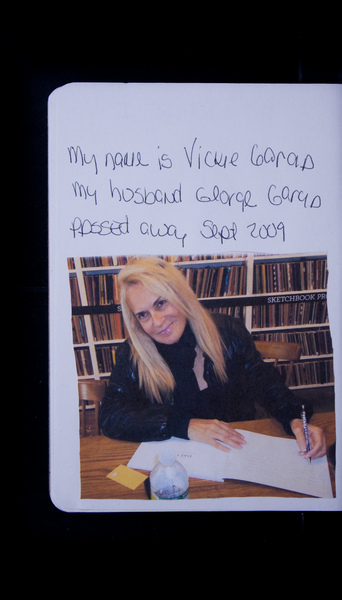 My name is Vickie Garcia
My husband George Garcia
passed away Sept 2009
SKETCHBOOK PR